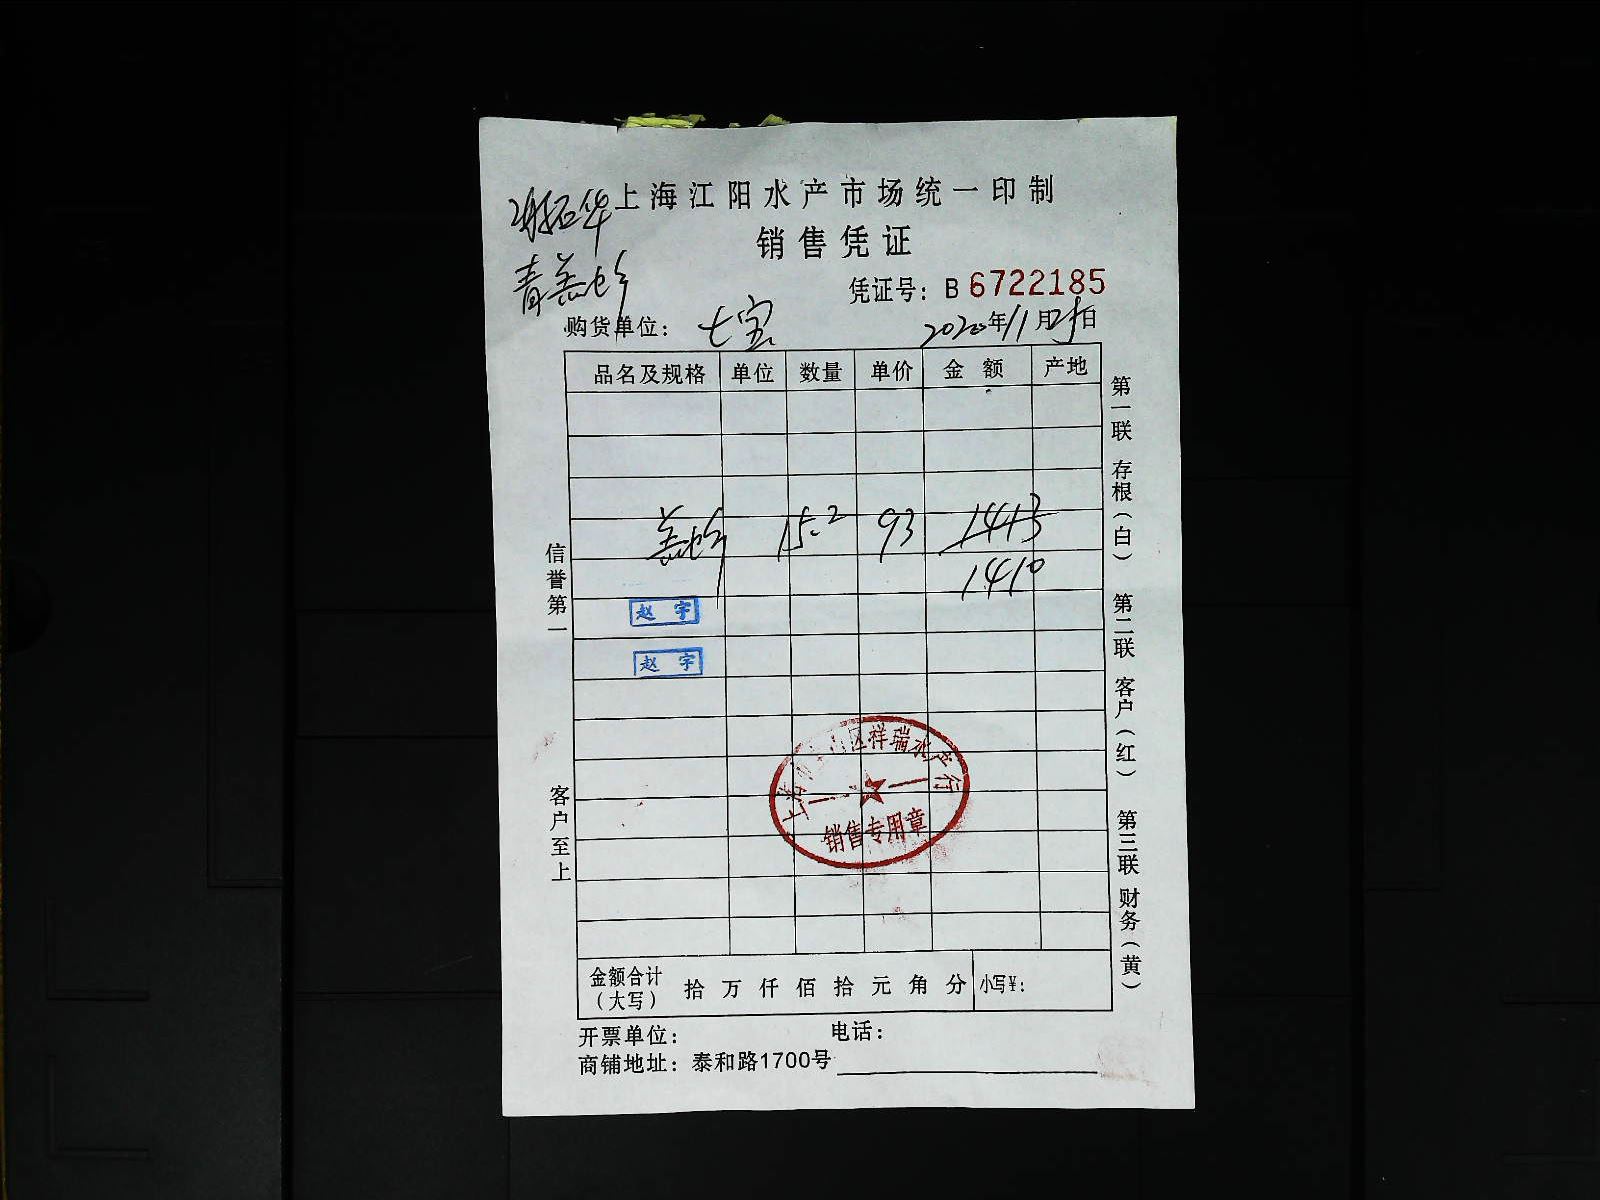 上海江阳水产市场统一印制
销售凭证
凭证号：B 6722185
购货单位：七宝
2020年11月 日
品名及规格 单位 数量 单价 金额 产地
15.2 93 1413
1410
赵宇
赵宇
区祥瑞水产行
销售专用章
金额合计（大写） 拾 万 仟 佰 拾 元 角 分 小写¥：
开票单位： 电话：
商铺地址：泰和路1700号
信誉第一
客户至上
第一联 存根（白）
第二联 客户（红）
第三联 财务（黄）